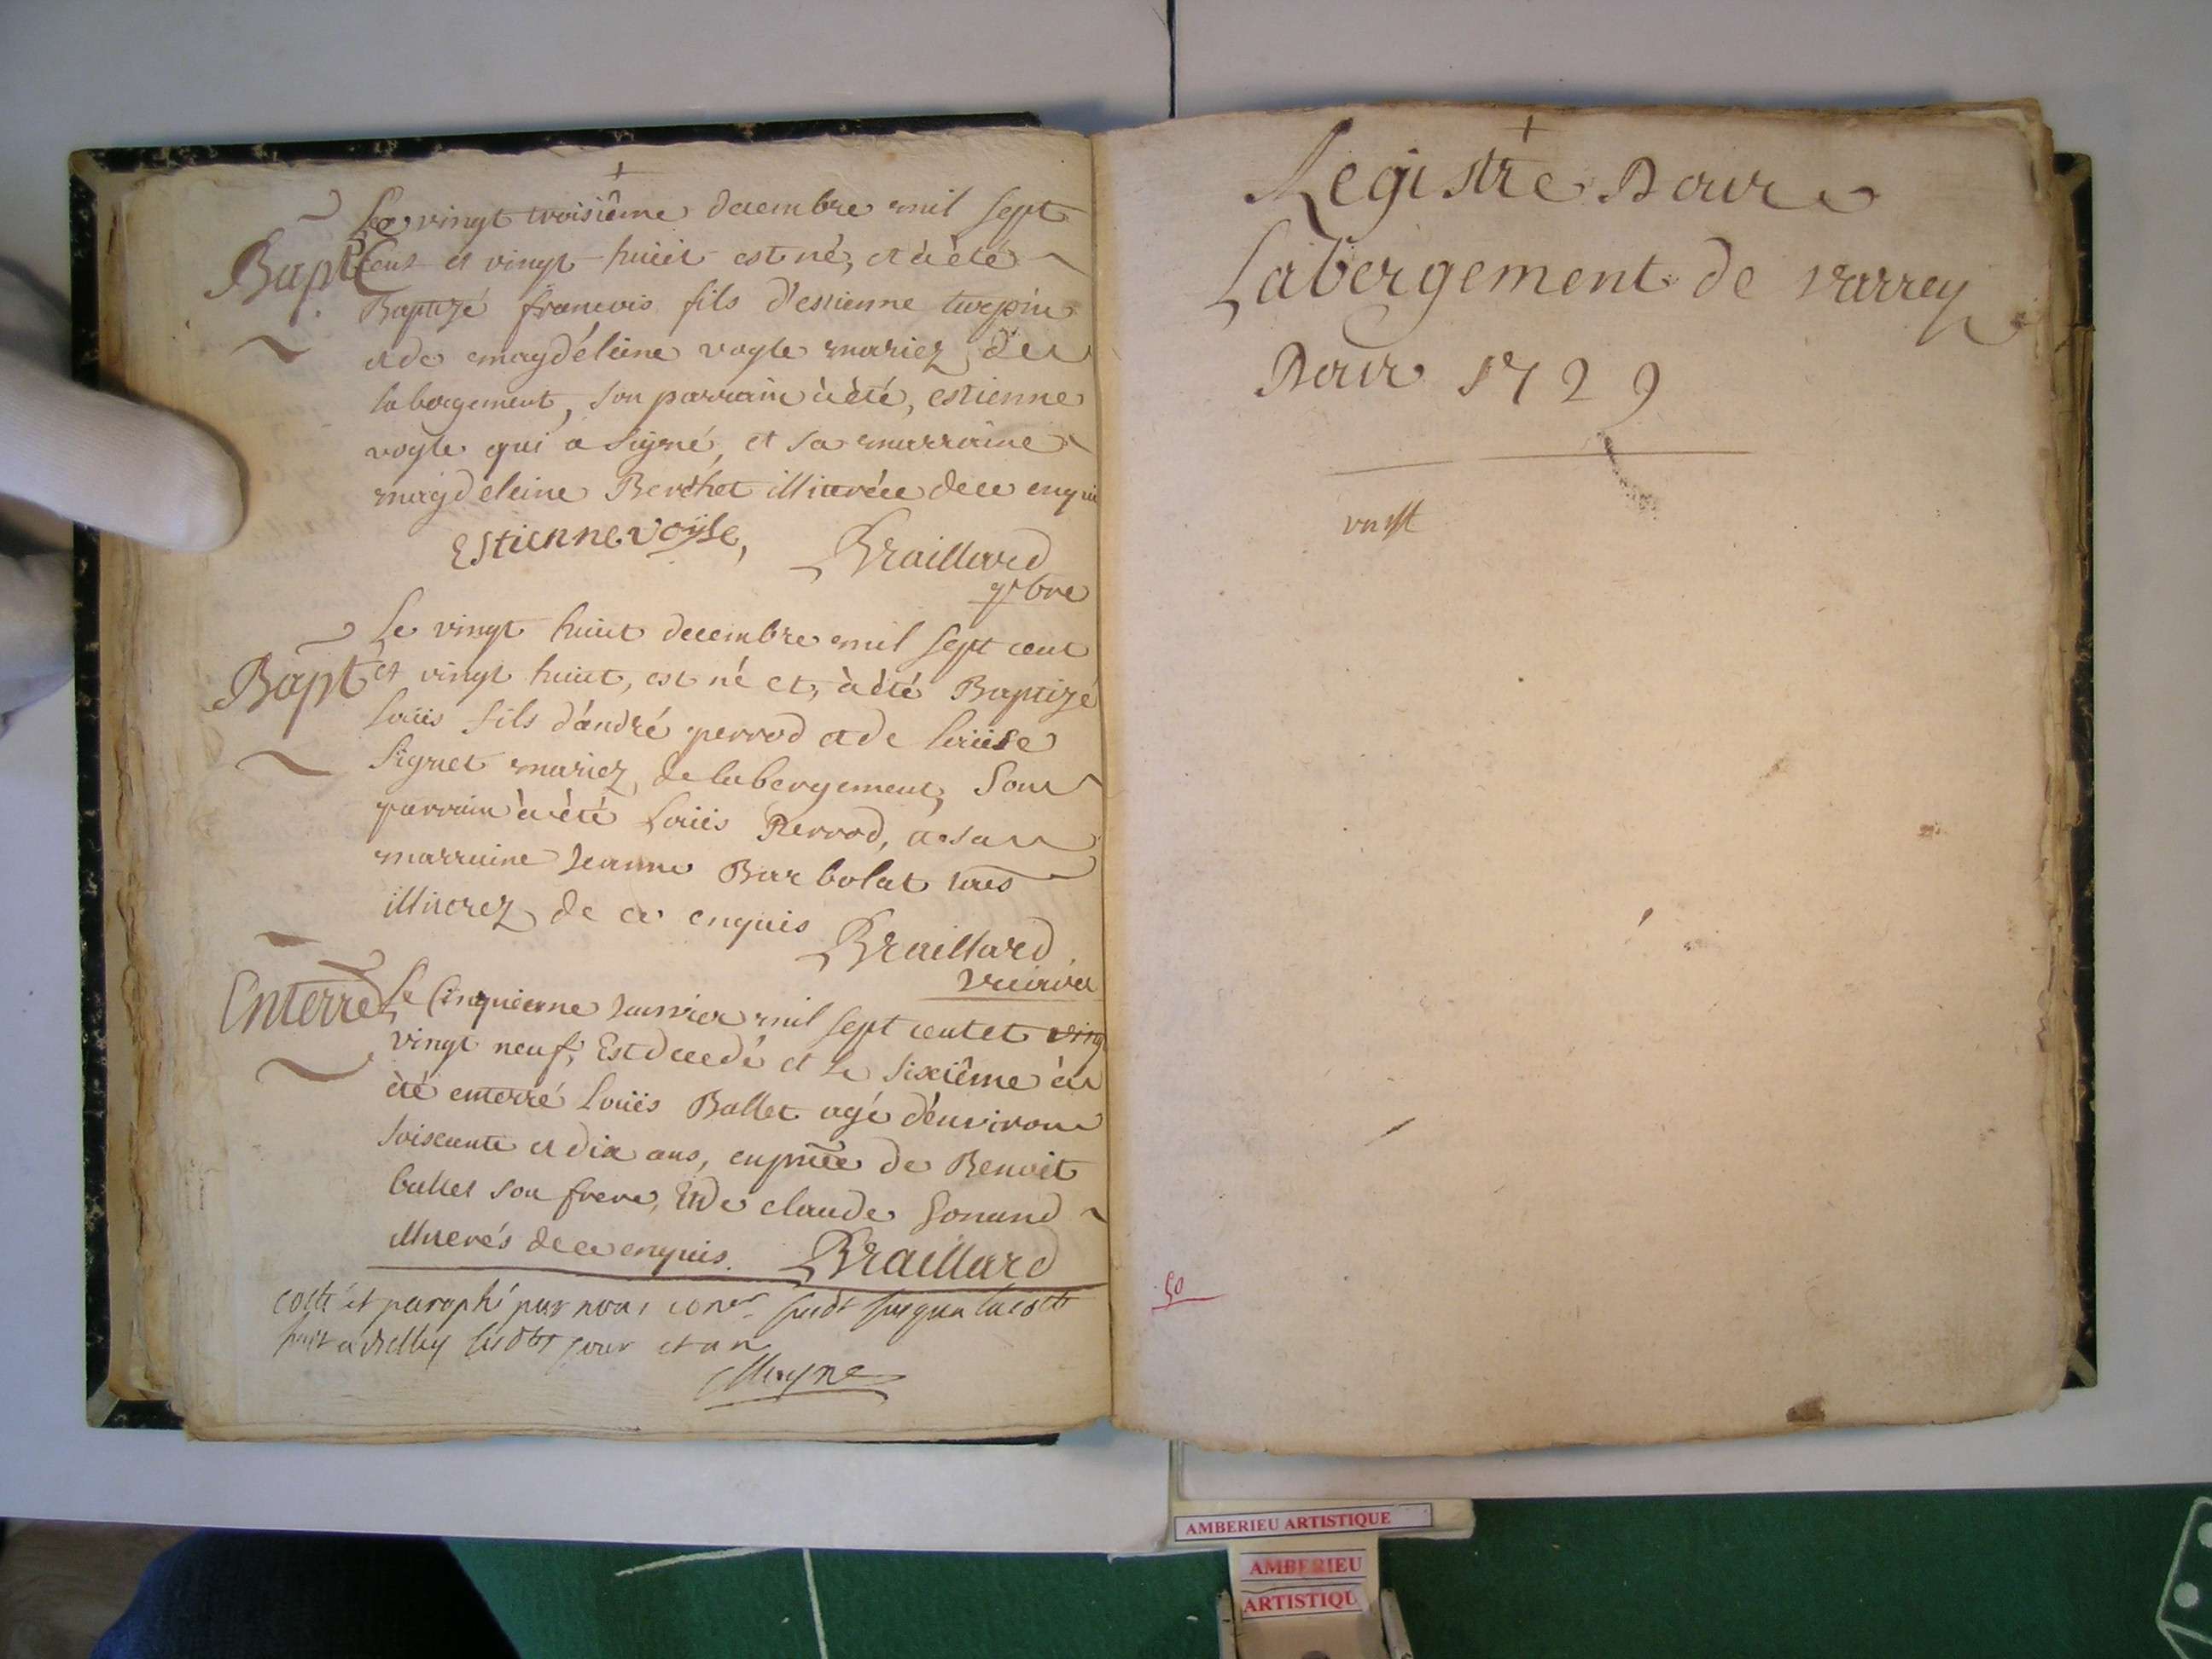 Le vingt troisiême decembre mil sept
Bapt
Cent et vingt huiit est né, et à èté
Baptizé francois fils d'estienne turpin
et de magdéleine vogle mariez de
labergement, son parrain à èté, estienne
vogle qui a signé, et sa marraine
magdeleine Berchet illiterée de ce enquis
Estienne voÿle, Braillard
Le vingt huiit decembre mil sept cent
Bapt
et vingt huiit, est né et, à èté Baptizé
Loüis fils d'andré perrod et de loüise
Signet mariez, de labergement, Son
parrain à èté Loüis Perrod, et sa
marraine Jeanne Barbolat tous
illiterez de ce enquis Braillard
Vicaire
Enterré
Le Cinquieme Janvier mil sept cent et ving
vingt neuf, Est decedé et le sixiême à
été enterré Loüis Ballet agé d'environ
soixante et dix ans, en pñce de Benoit
ballet son frere, Et de claude Gonand
illiterés de ce enquis. Braillard
cotté et paraphé par nous coner susdt jusqua la cotte
fait a Belley lesdts jour et an
Registre Pour
Labergement de varrey
Pour 1729
50
AMBERIEU ARTISTIQUE
AMBERIEU
ARTISTIQU